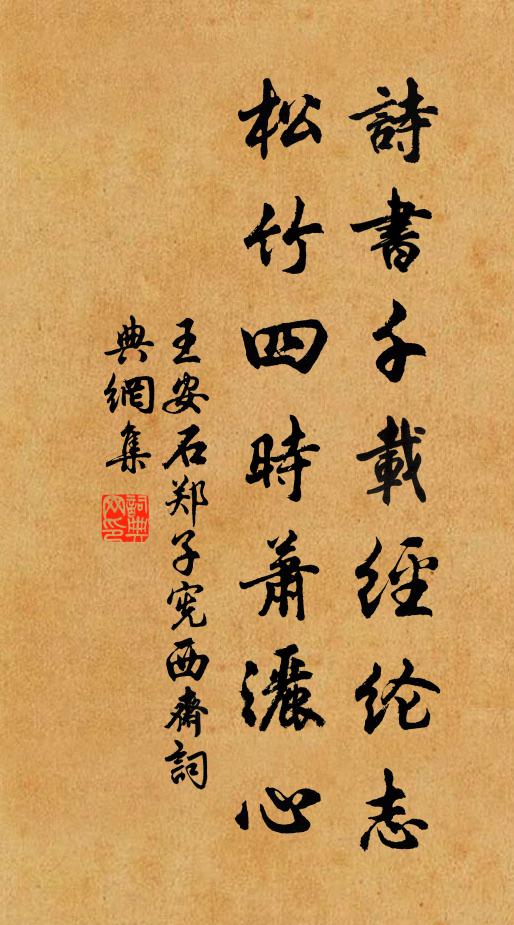 詩書千載經纶志
松竹四時蕭灑心
王安石郑子宪西齋詞
典網集
詞典
网印